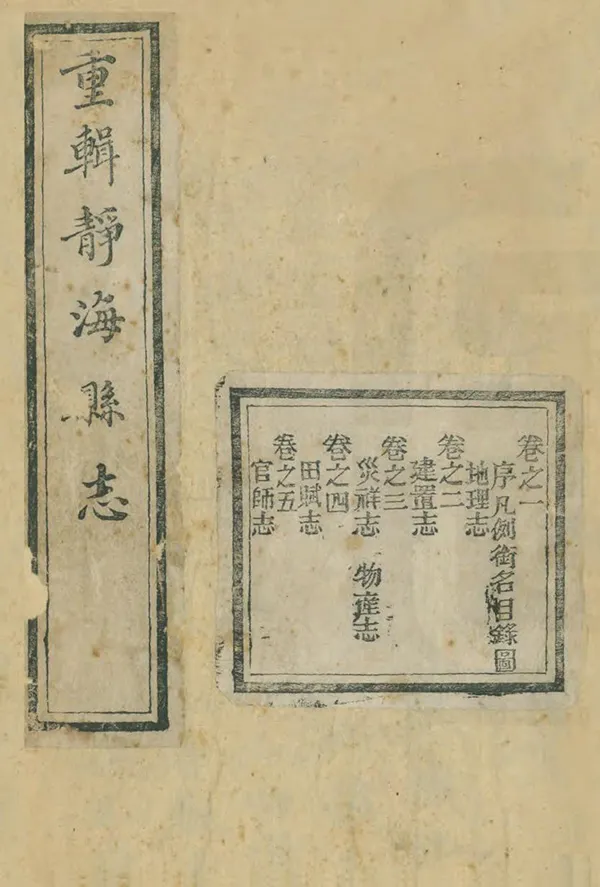 重輯靜海縣志
卷之一
序凡例銜名目錄圖
地理志
卷之二
建置志
卷之三
災祥志　物產志
卷之四
田賦志
卷之五
官師志